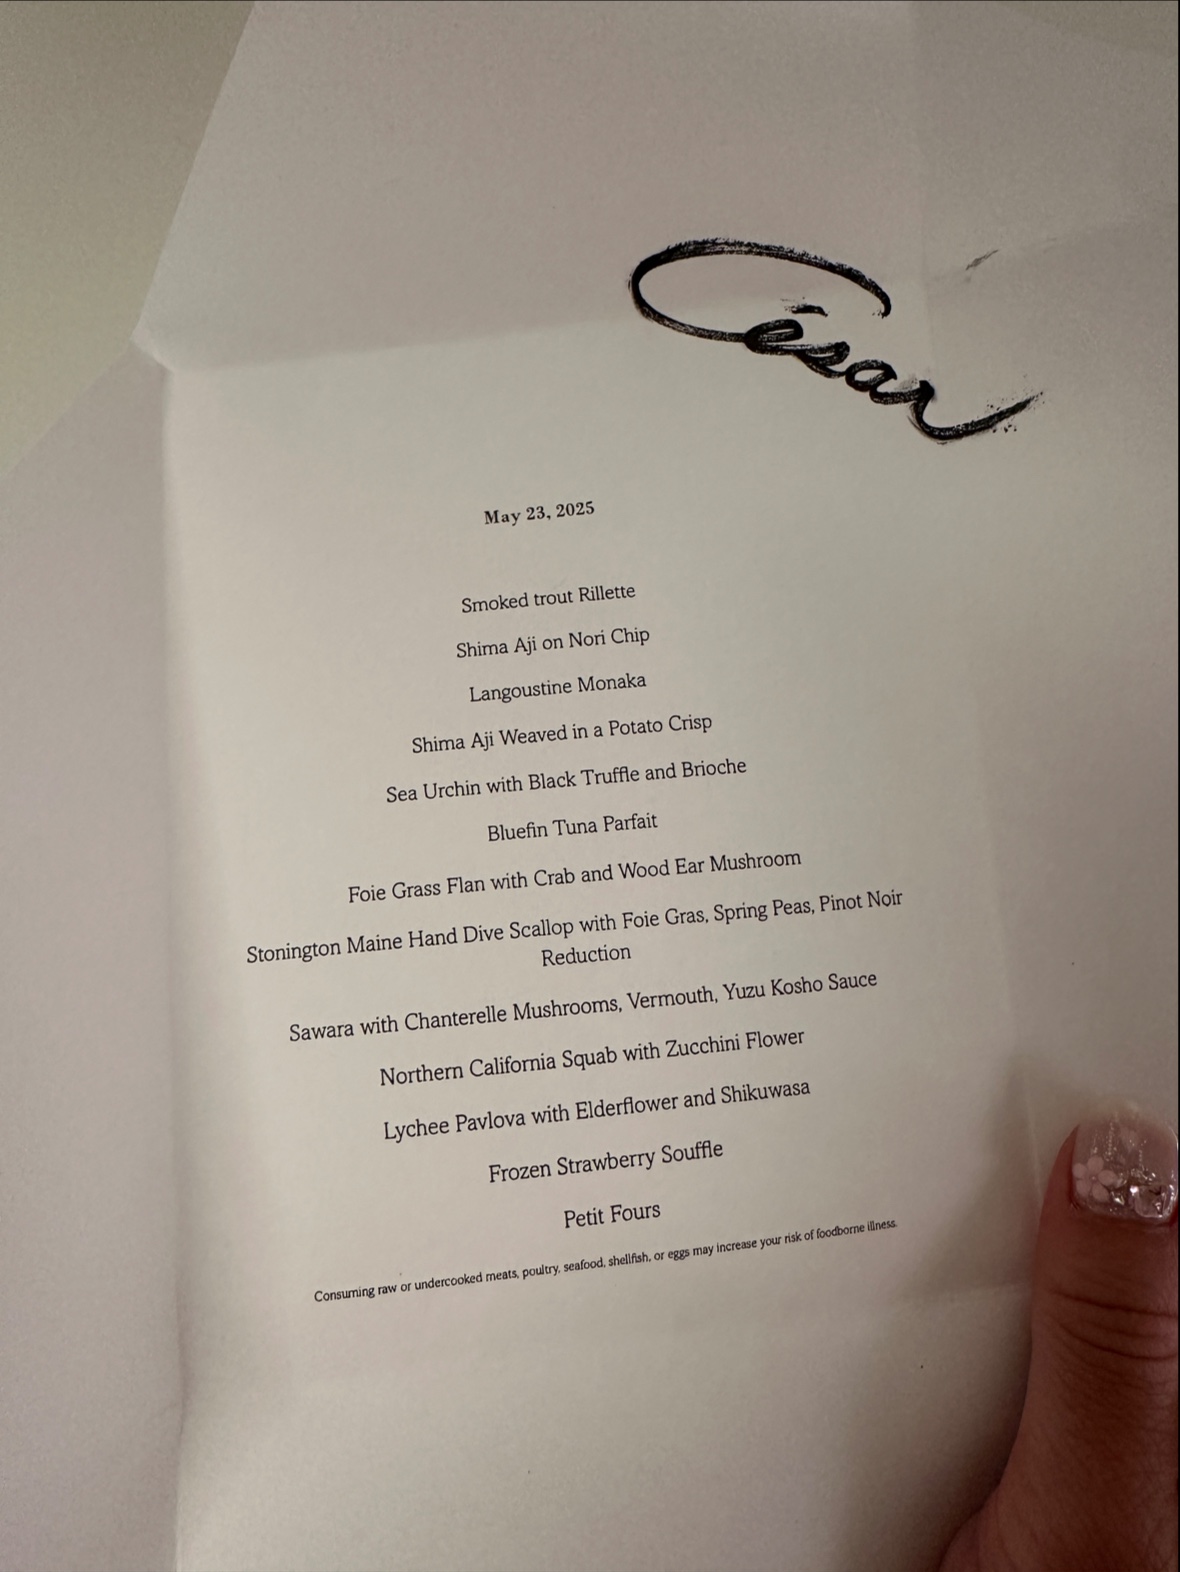 César
May 23, 2025
Smoked trout Rillette
Shima Aji on Nori Chip
Langoustine Monaka
Shima Aji Weaved in a Potato Crisp
Sea Urchin with Black Truffle and Brioche
Bluefin Tuna Parfait
Foie Grass Flan with Crab and Wood Ear Mushroom
Stonington Maine Hand Dive Scallop with Foie Gras, Spring Peas, Pinot Noir
Reduction
Sawara with Chanterelle Mushrooms, Vermouth, Yuzu Kosho Sauce
Northern California Squab with Zucchini Flower
Lychee Pavlova with Elderflower and Shikuwasa
Frozen Strawberry Souffle
Petit Fours
Consuming raw or undercooked meats, poultry, seafood, shellfish, or eggs may increase your risk of foodborne illness.